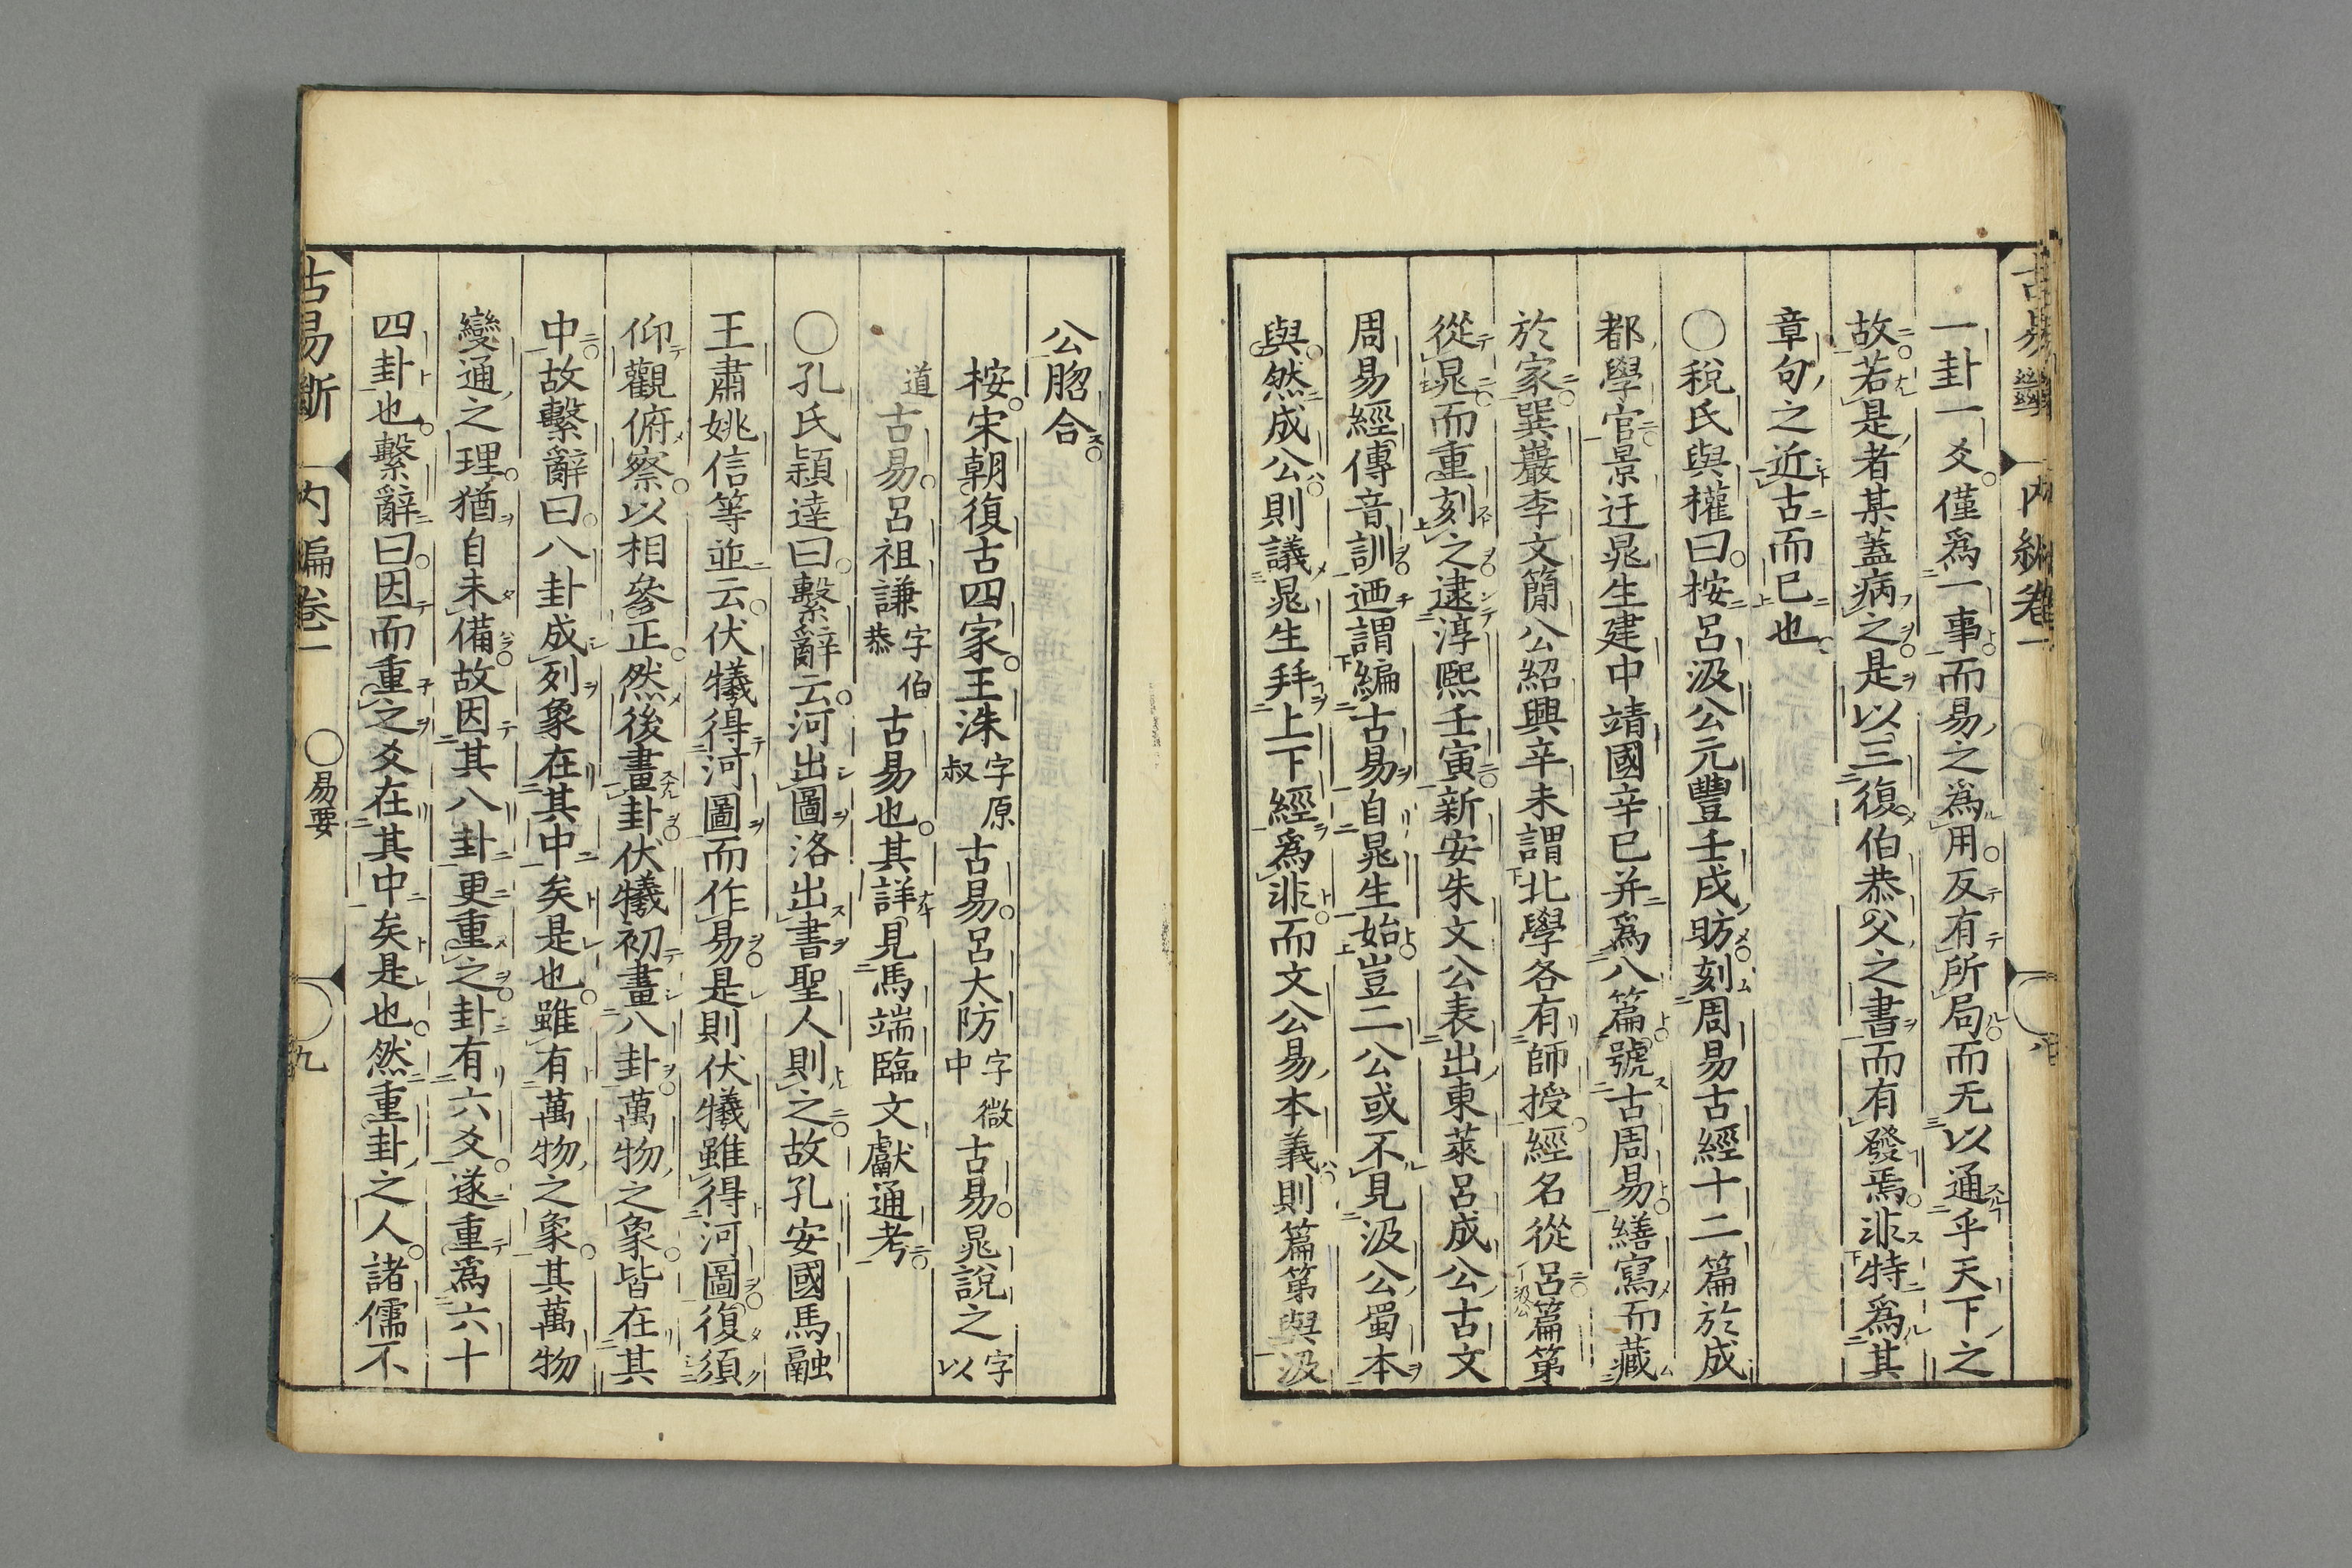 一卦一爻僅爲一事而易之爲用反有所局而无以通乎天下之
故若是者某蓋病之是以三復伯恭父之書而有發焉非特爲其
章句之近古而已也
○稅氏與權曰按呂汲公元豐壬戌昉刻周易古經十二篇於成
都學官景迂晁生建中靖國辛巳并爲八篇號古周易繕寫而藏
於家巽巖李文簡公紹興辛未謂北學各有師授經名從呂篇第
從晁而重刻之逮淳熙壬寅新安朱文公表出東萊呂成公古文
周易經傳音訓迺謂編古易自晁生始豈二公或不見汲公蜀本
與然成公則議晁生拜上下經爲非而文公易本義則篇第與汲
公脗合
按宋朝復古四家王洙字原叔古易呂大防字微中古易晁說之字以
道古易呂祖謙字伯恭古易也其詳見馬端臨文獻通考
○孔氏穎達曰繫辭云河出圖洛出書聖人則之故孔安國馬融
王肅姚信等並云伏犧得河圖而作易是則伏犧雖得河圖復須
仰觀俯察以相參正然後畫卦伏犧初畫八卦萬物之象皆在其
中故繫辭曰八卦成列象在其中矣是也雖有萬物之象其萬物
變通之理猶自未備故因其八卦更重之卦有六爻遂重爲六十
四卦也繫辭曰因而重之爻在其中矣是也然重卦之人諸儒不
古易斷 內編卷一 ○易要 九